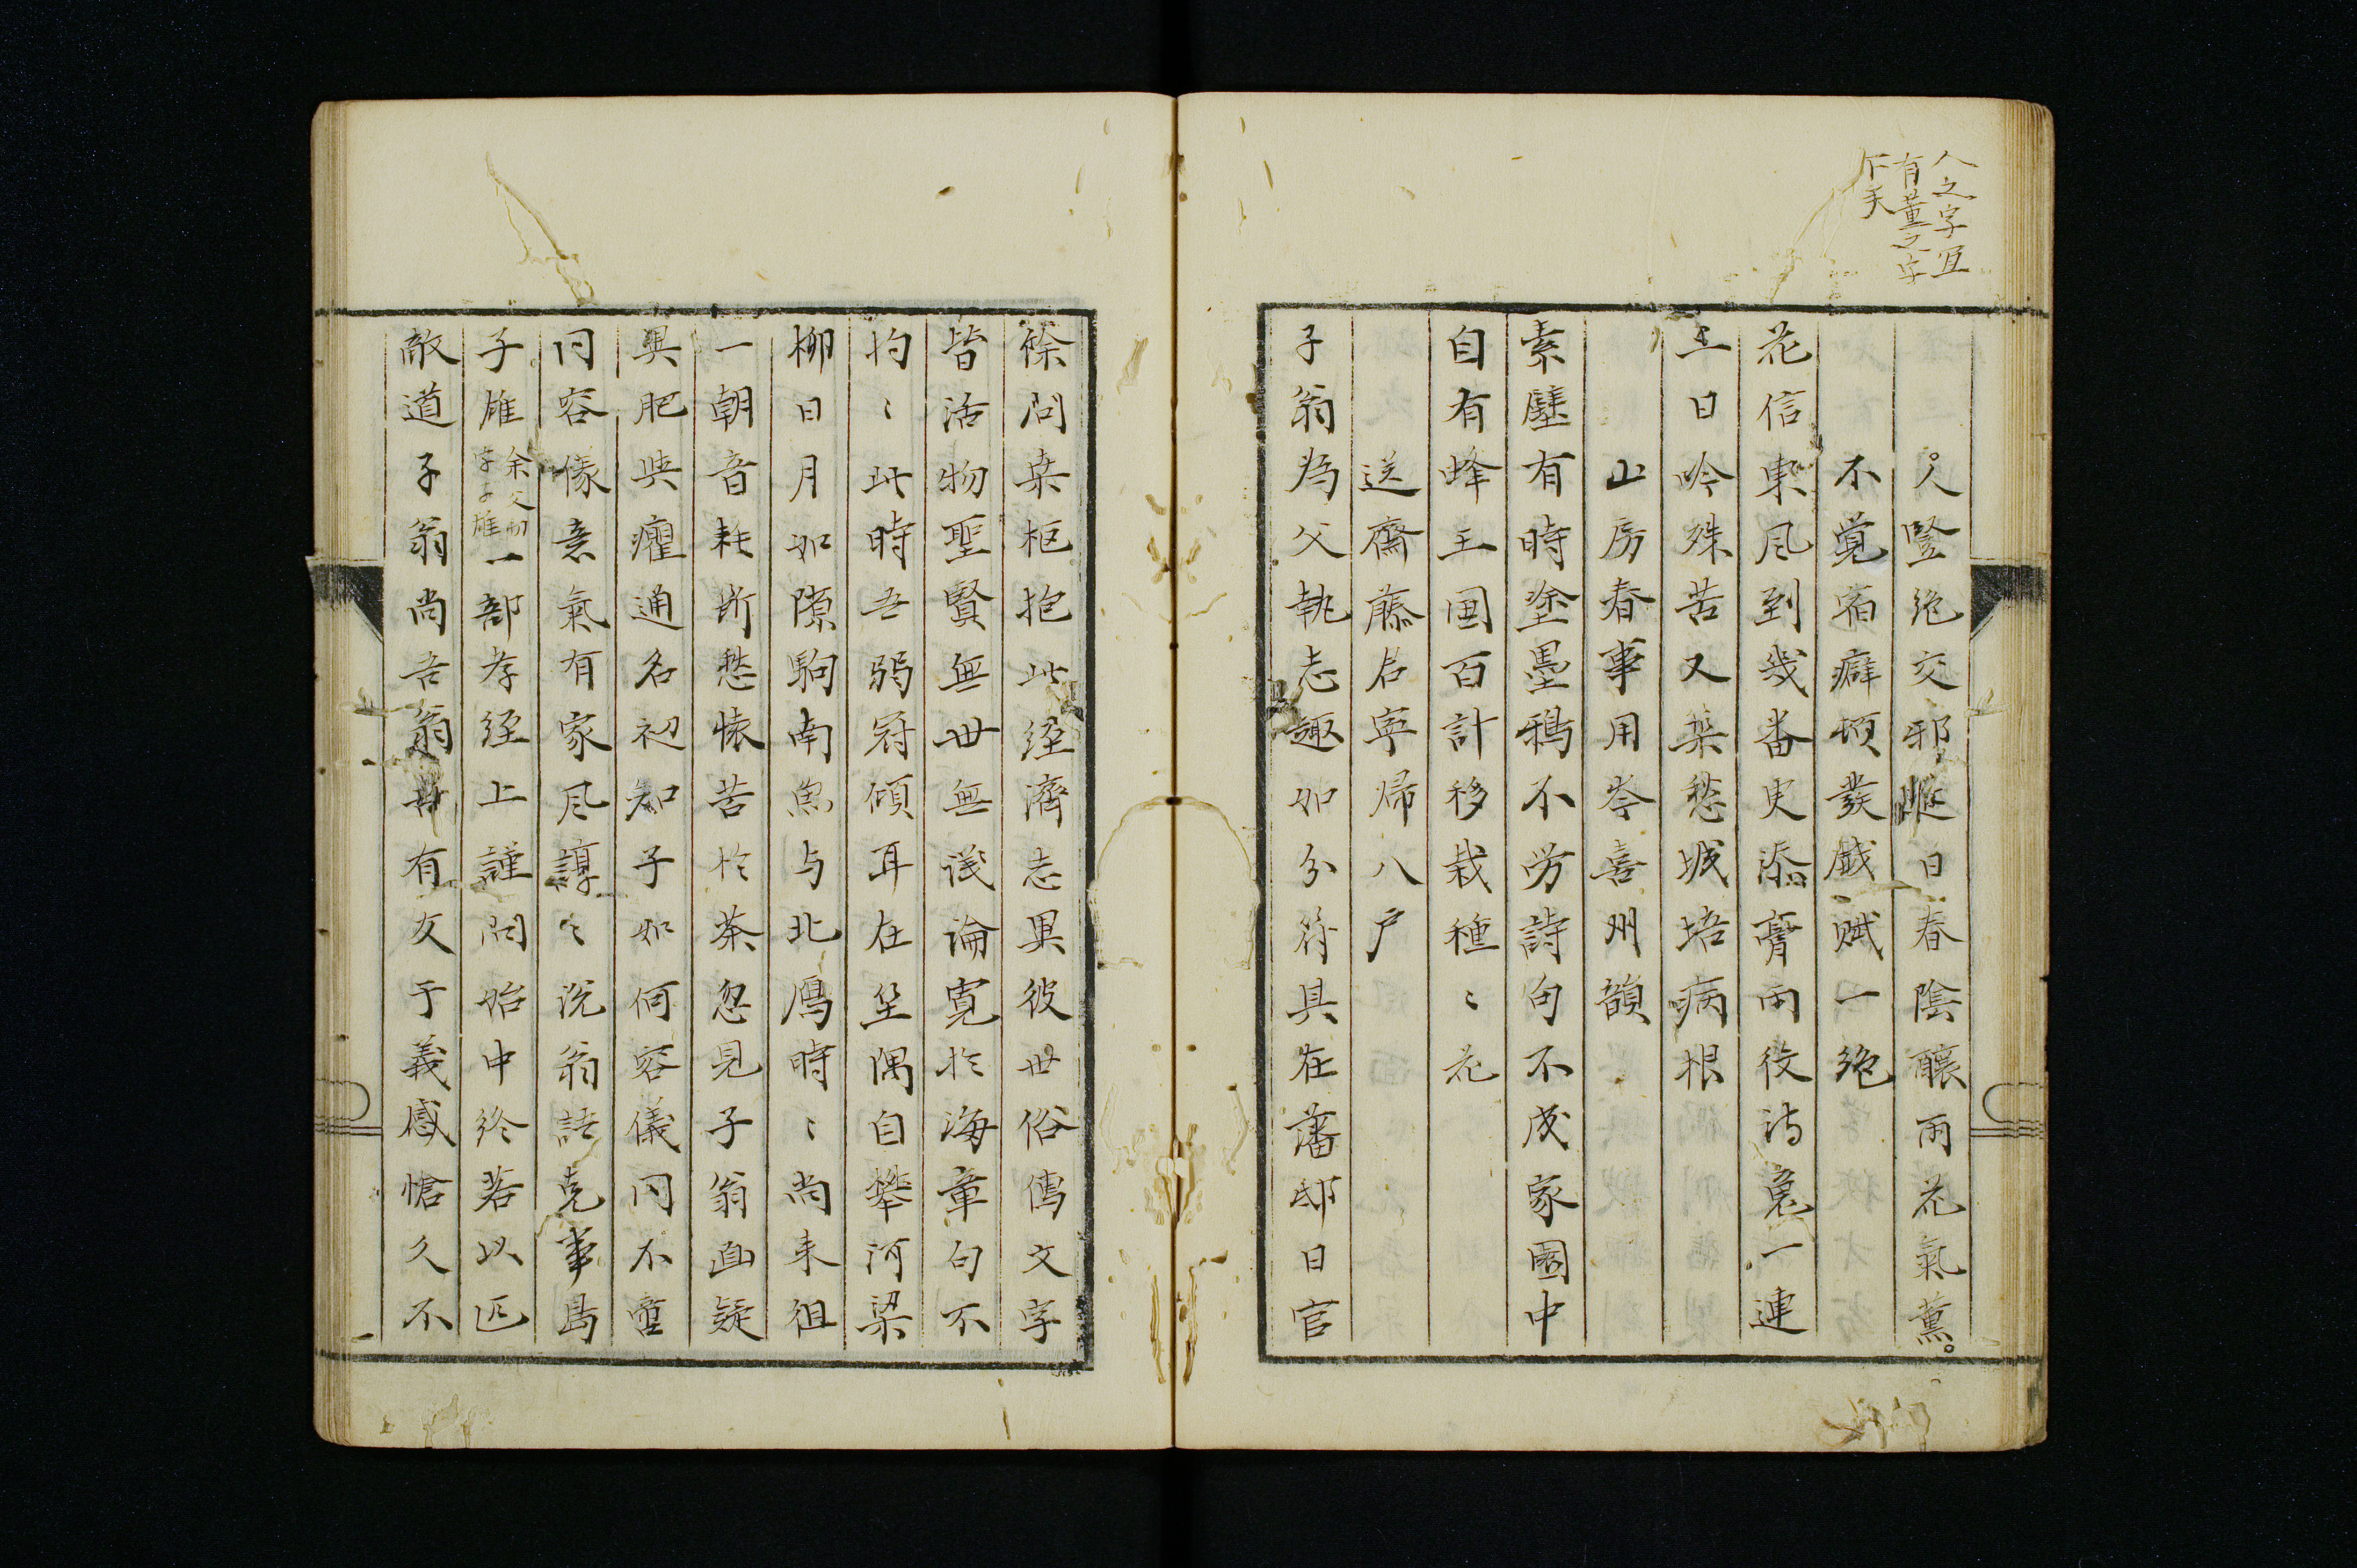 人之字宜
有董之字
乍天
人豎絶交邪崐日春陰釀雨花氣薫
不覚宿癖頓發戲賦一絶
花信東风到幾番更添膏雨役詩䰟一連
三日吟殊苦又築愁城培病根
山房春事用岑喜州韻
素壁有時塗墨鴉不労詩句不成家園中
自有蜂王国百計移栽種〻花
送齋藤君寧帰八戸
子翁為父執志趣如分符具在藩邸日官
餘問桒柩抱此経濟志異彼世俗傳文字
皆活物聖賢無世無議論寛於海章句不
拘〻此時吾弱冠傾耳在坐隅自攀河梁
柳日月如隙駒南魚与北鴈時〻尚来徂
一朝音耗断愁懐苦於荼忽見子翁面疑
異肥與癯通名初知子如何容儀同不啻
同容㒵意氣有家风諄〻説翁語克事島
子雄
余父初
字子雄
一部孝経上謹問始中終若以匹
敵道子翁尚吾翁
有友于義感愴久不